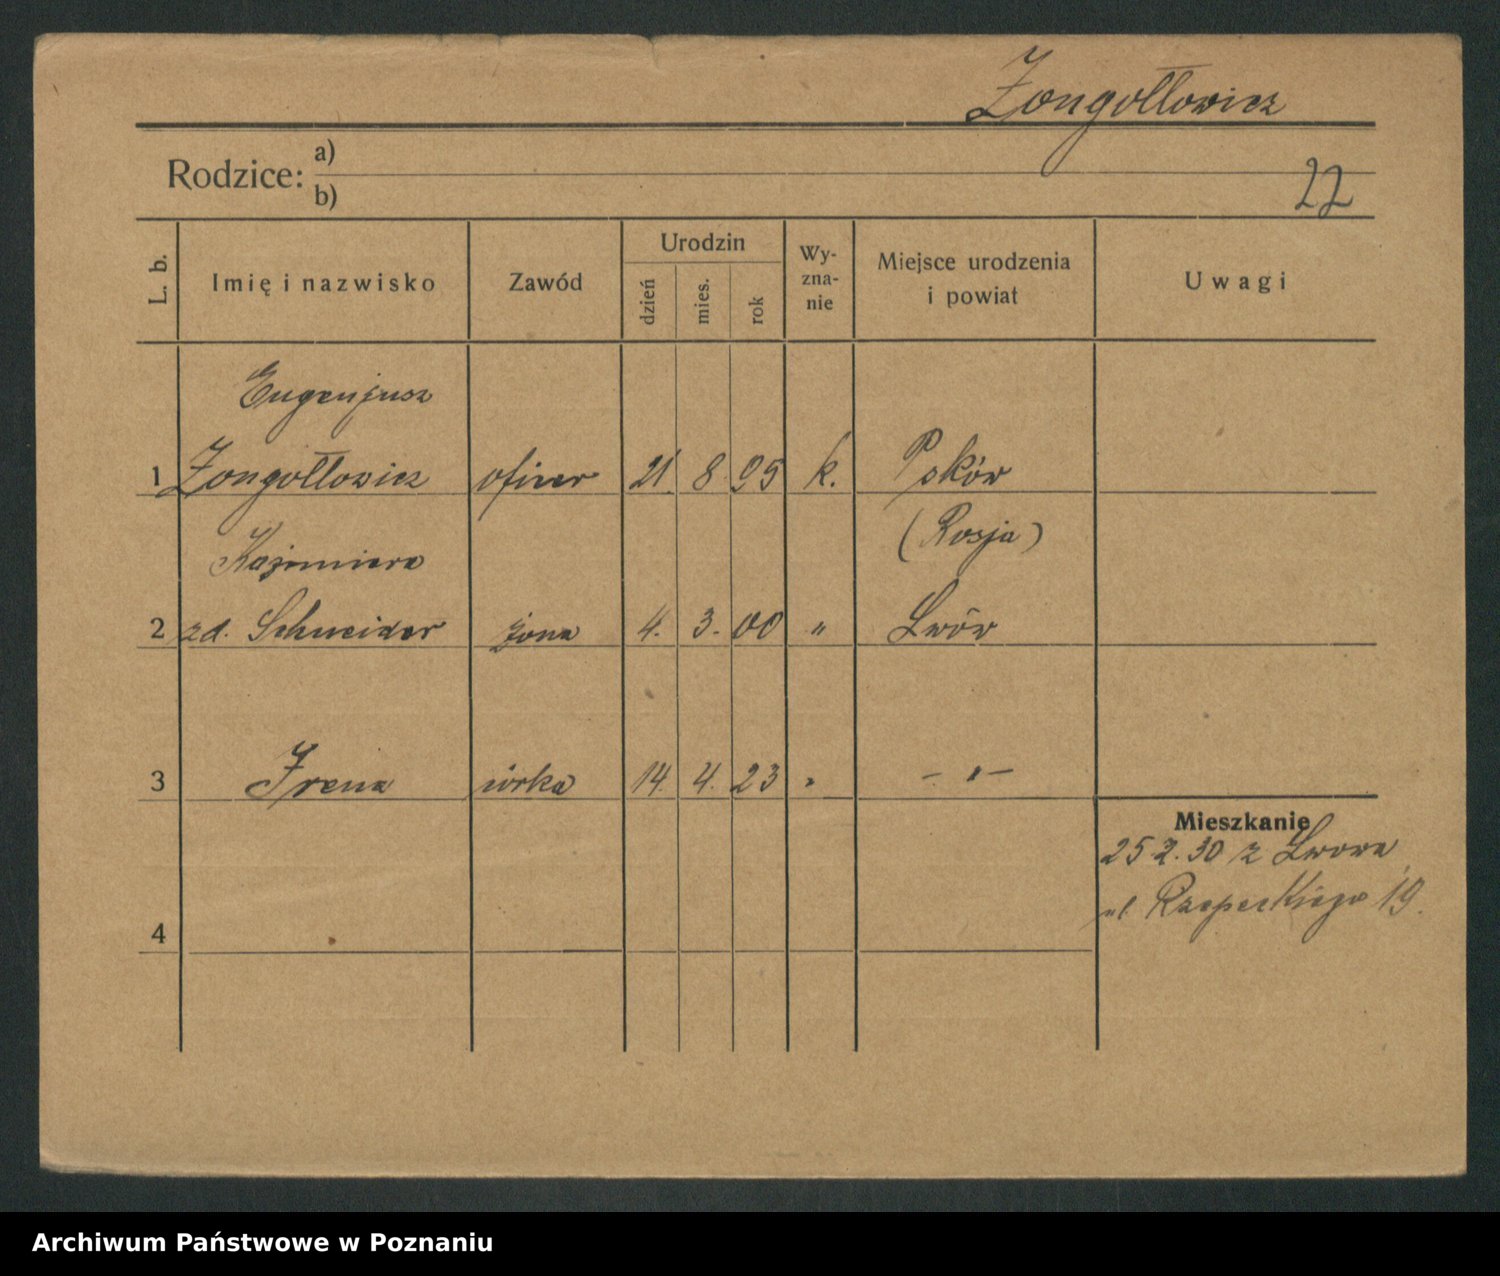 Żongołłowicz
Rodzice: a)
b)
22
L. b. Imię i nazwisko Zawód Urodzin dzień mies. rok Wy-zna-nie Miejsce urodzenia i powiat Uwagi
Eugenjusz
1 Żongołłowicz oficer 21 8 95 k. Psków
(Rosja)
Kazimiera
2 zd. Schneider żona 4. 3. 00 " Lwów
3 Irena córka 14. 4. 23 " – " –
Mieszkanie
25 2. 30 z Lwowa
ul. Rzepeckiego 19.
4
Archiwum Państwowe w Poznaniu